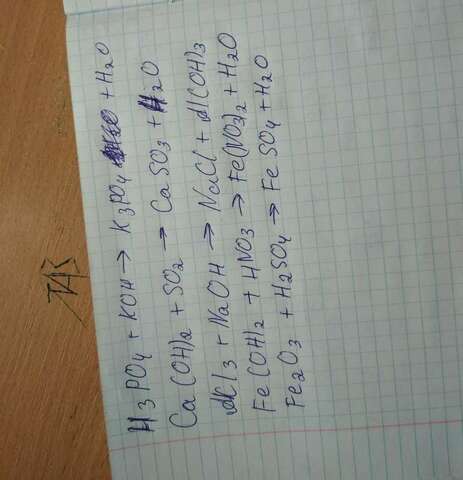 H3PO4 + KOH → K3PO4 + H2O
Ca(OH)2 + SO2 → CaSO3 + H2O
AlCl3 + NaOH → NaCl + Al(OH)3
Fe(OH)2 + HNO3 → Fe(NO3)2 + H2O
Fe2O3 + H2SO4 → FeSO4 + H2O